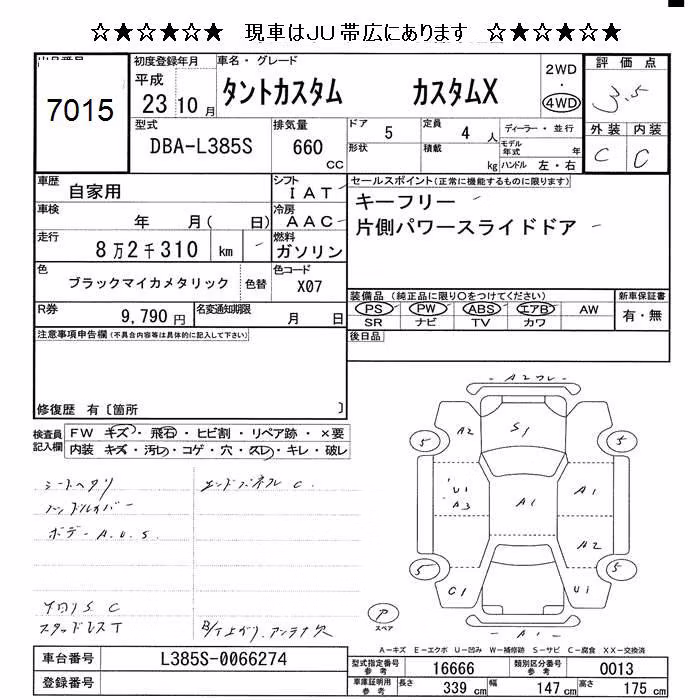 ☆★☆★☆★☆ 現車はJU帯広にあります ☆★☆★☆★☆
出品番号
7015
初度登録年月
平成
23年10月
車名・グレード
タントカスタム カスタムX
2WD
・
4WD
評価点
3.5
外装 内装
C C
型式
DBA-L385S
排気量
660
CC
ドア 5
定員 4人
形状
積載 kg
ディーラー・並行
モデル年式 年
ハンドル 左・右
車歴
自家用
シフト
IAT
車検
年 月( 日)
冷房
AAC
走行
8万2千310 km
燃料
ガソリン
色
ブラックマイカメタリック 色替
色コード
X07
R券
9,790円
名変通知期限
月 日
セールスポイント(正常に機能するものに限ります)
キーフリー
片側パワースライドドア
装備品(純正品に限り○をつけてください)
PS PW ABS エアB AW
SR ナビ TV カワ
新車保証書
有・無
後日品
注意事項申告欄(不具合内容等は具体的に記入して下さい)
修復歴 有〔箇所 〕
検査員記入欄
FW キズ・飛石・ヒビ割・リペア跡・×要
内装 キズ・汚レ・コゲ・穴・スレ・キレ・破レ
シートヘタリ
ハンドルカバー
ボデーA.U.S.
エンドパネルC.
下回りS C
スタッドレスT
アンテナ欠
A2
S1
5
5
A2
U1
A3
A1
A1
A2
5
5
C1
U1
A1
P
スペア
A-キズ E-エクボ U-凹み W-補修跡 S-サビ C-腐食 XX-交換済
車台番号
L385S-0066274
登録番号
型式指定番号
参考
16666
類別区分番号
参考
0013
車庫証明用
参考
長さ 339 cm
幅 147 cm
高さ 175 cm